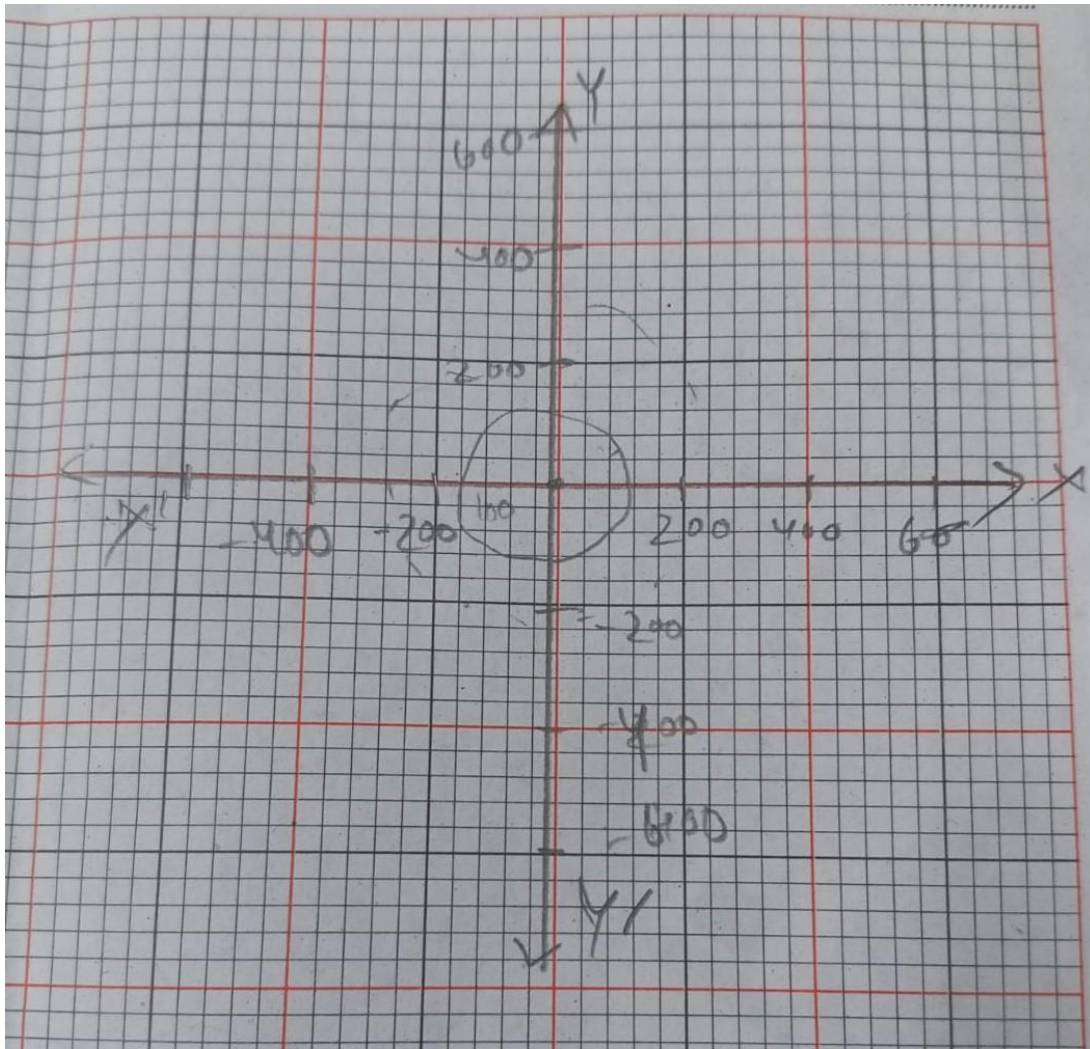 Y
600
400
200
X
X'
-400
-200
100
200
400
60
-200
-400
-600
Y'